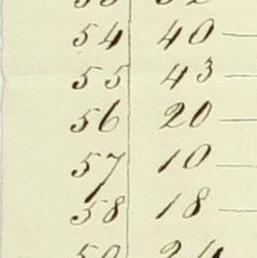 54 40 —
55 43 —
56 20 —
57 10 —
58 18 —